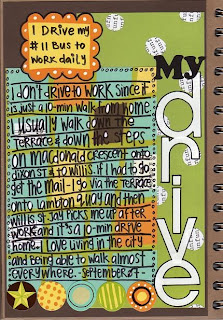 I DRIVE my
#11 BUS TO
WORK daily
My
drive
I don't drive to work since it
is just a 10-min walk from home.
I usually walk down the
Terrace & down the steps
on MacDonald Crescent onto
Dixon St & to Willis. If I had to go
get the mail - I go via the Terrace
onto Lambton Quay and then
Willis St. Jay picks me up after
work and it's a 10-min drive
home. I love living in the city
and being able to walk almost
everywhere. - September 07 -